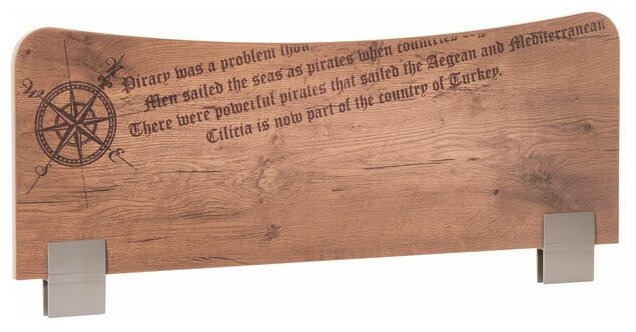 Piracy was a problem when countries
Men sailed the seas as pirates when
There were powerful pirates that sailed the Aegean and Mediterranean
Cilicia is now part of the country of Turkey.